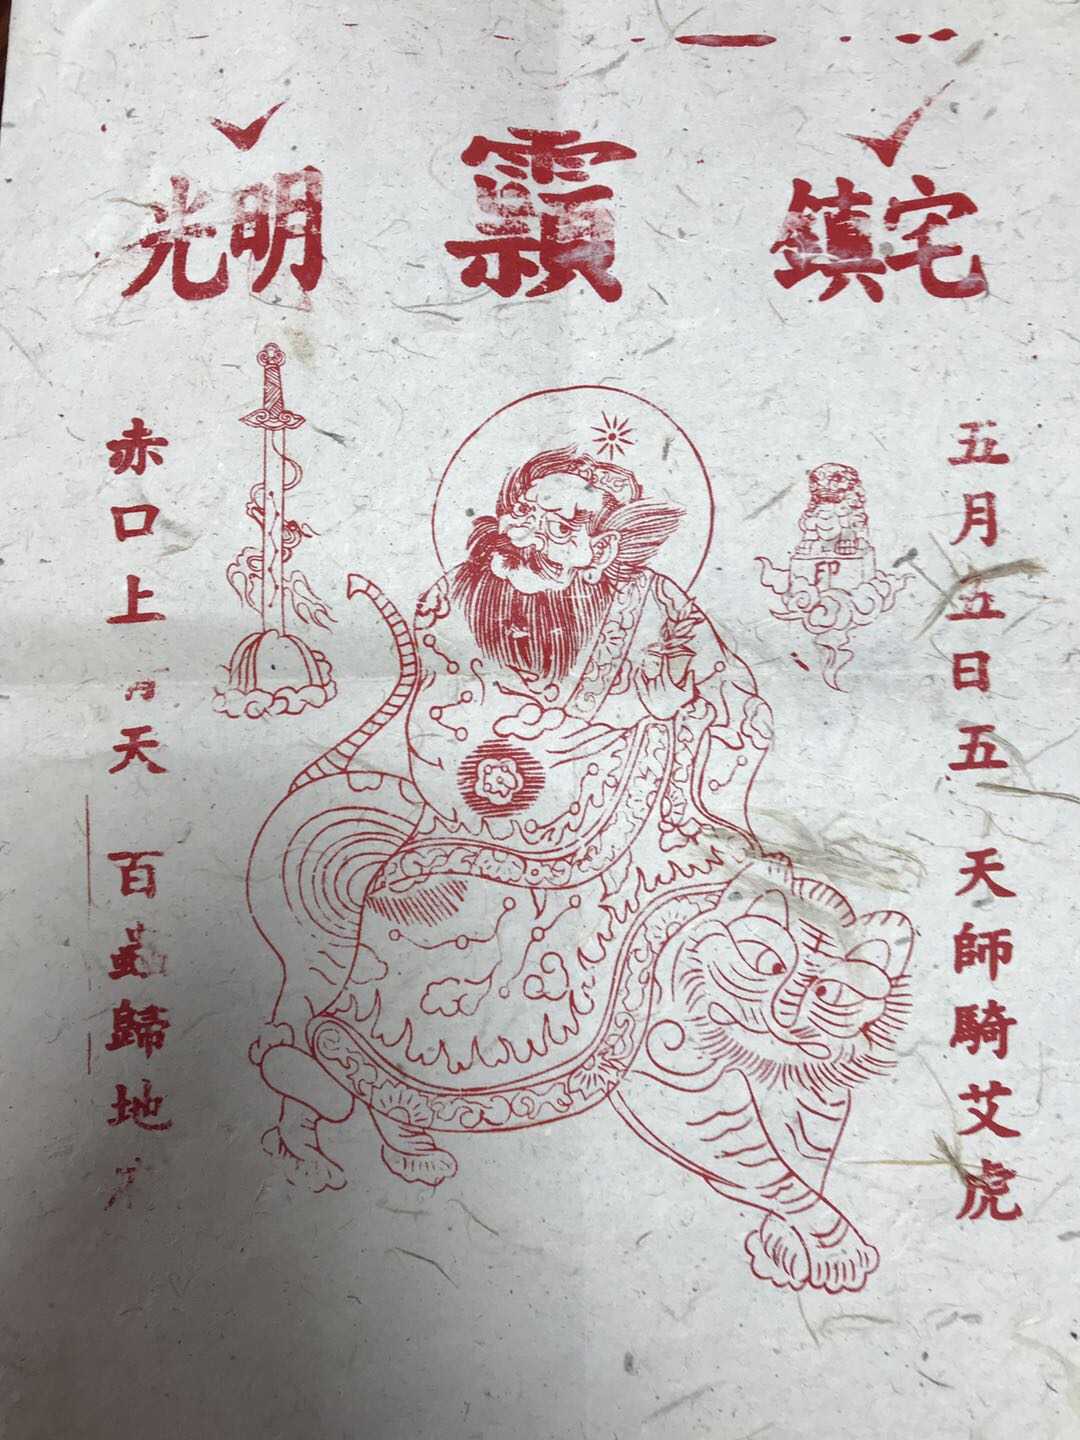 鎮宅
光明
五月五日五 天師騎艾虎
赤口上天 百蟲歸地
印